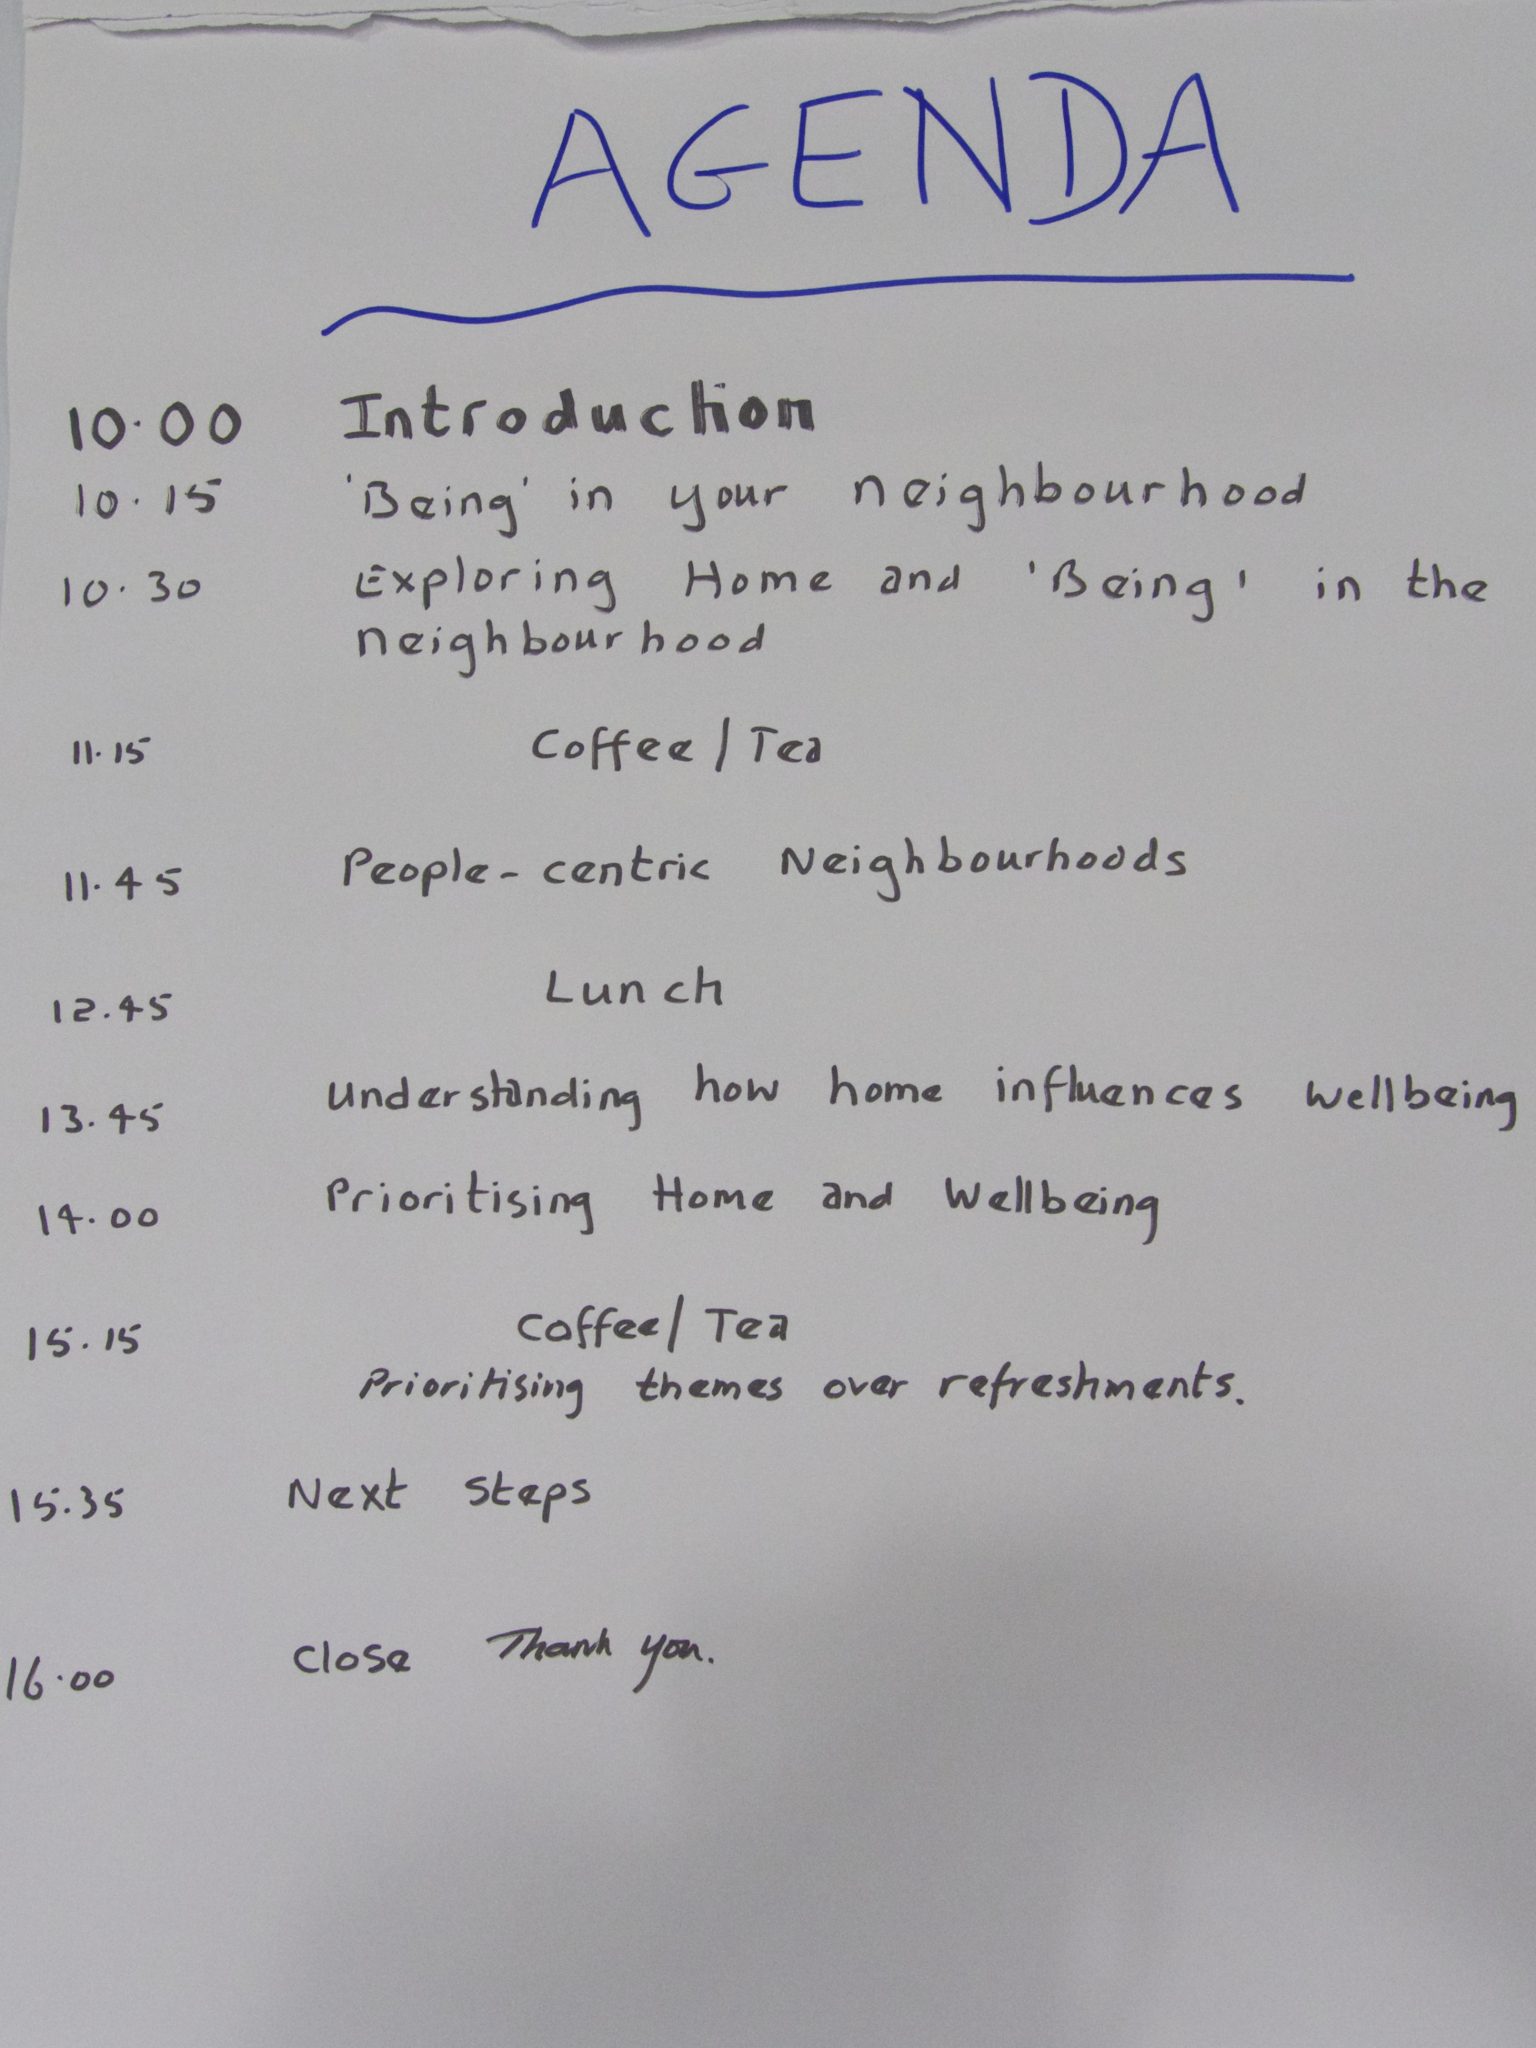 AGENDA
10.00 Introduction
10.15 'Being' in your neighbourhood
10.30 Exploring Home and 'Being' in the
neighbourhood
11.15 Coffee / Tea
11.45 People-centric Neighbourhoods
12.45 Lunch
13.45 Understanding how home influences wellbeing
14.00 Prioritising Home and Wellbeing
15.15 Coffee / Tea
Prioritising themes over refreshments.
15.35 Next Steps
16.00 Close Thank you.